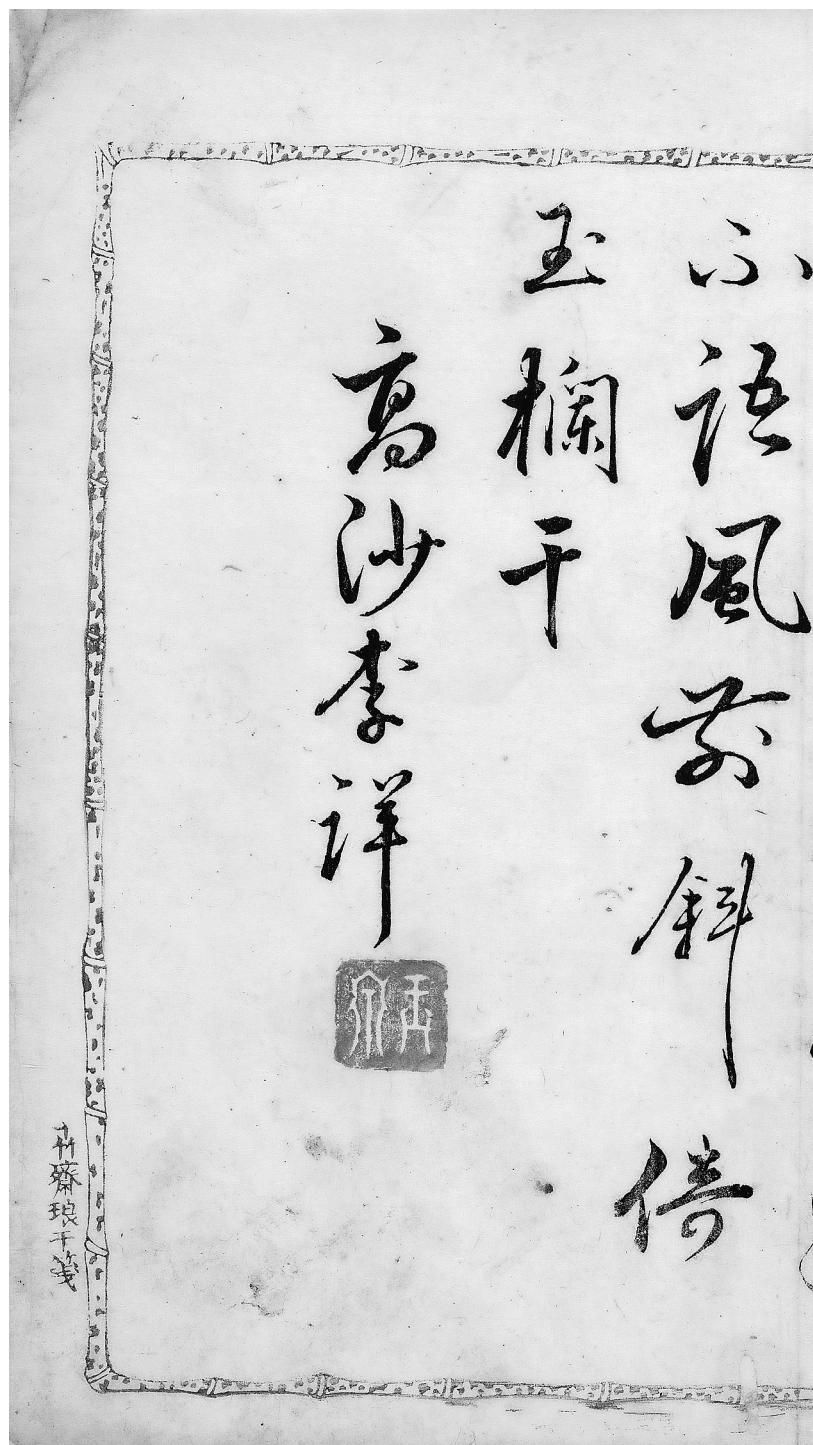 不語風前斜倚
玉欄干
高沙李詳
竹齋琅干箋